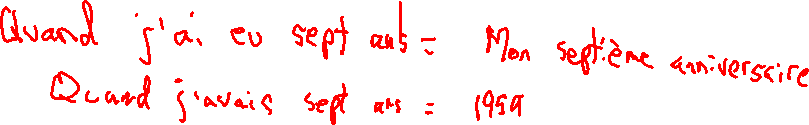 Quand j'ai eu sept ans = Mon septième anniversaire
Quand j'avais sept ans = 1959